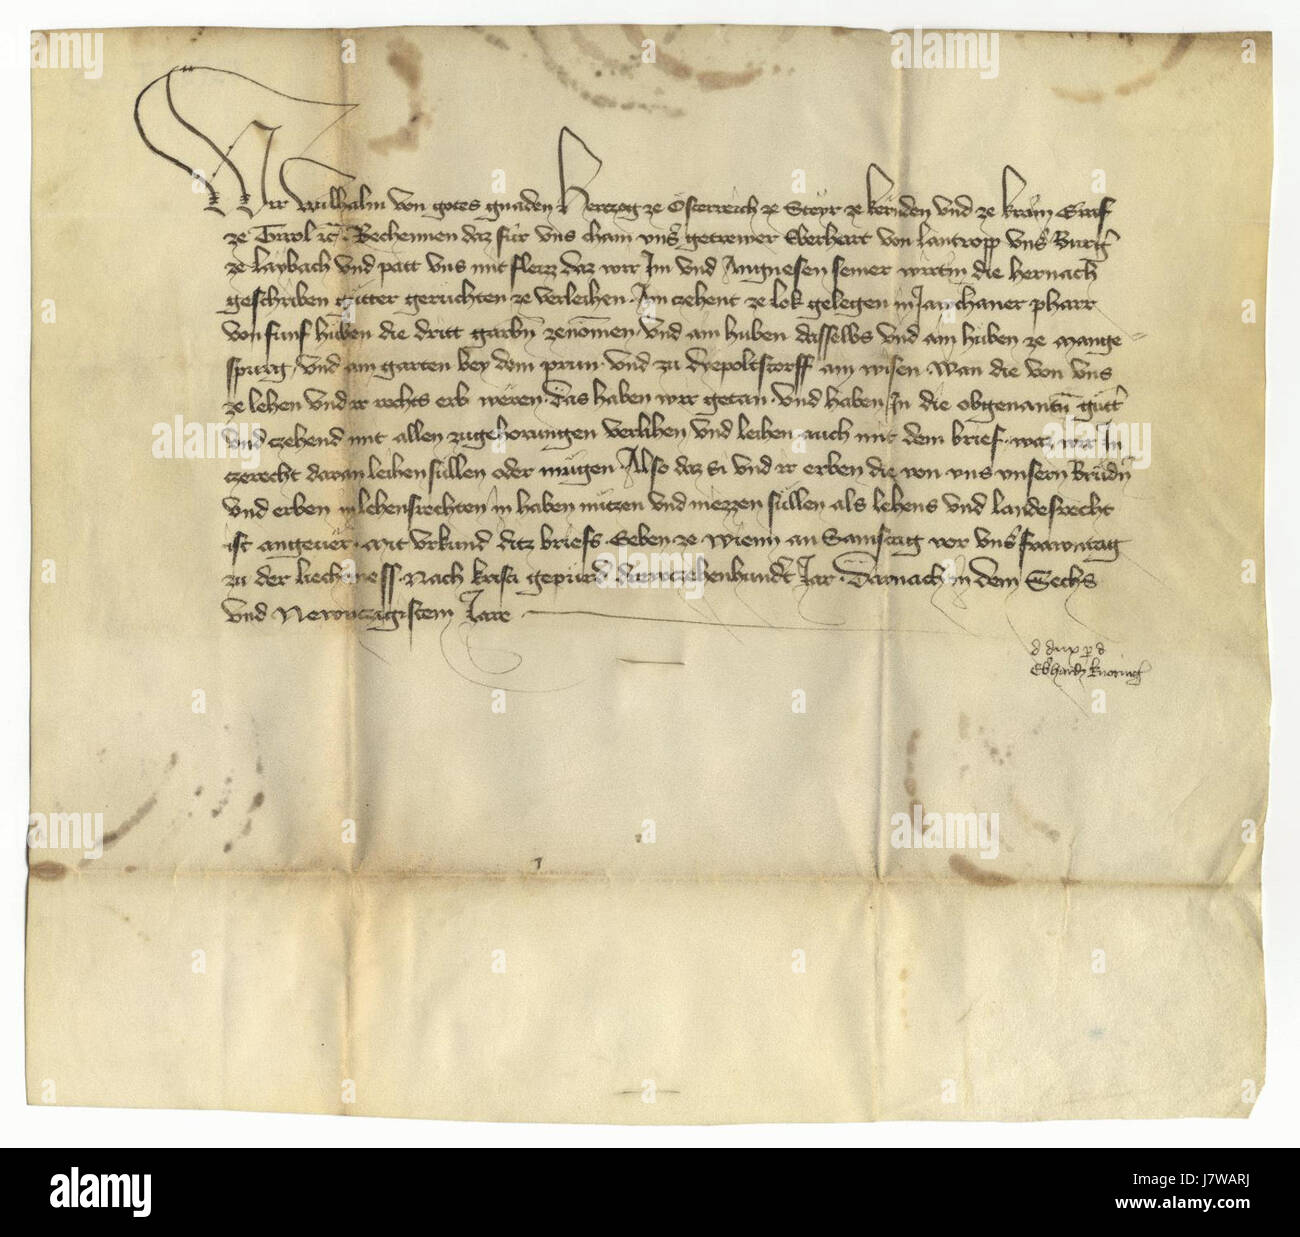 Wir Wilhalm von gotes gnaden Herczog ze Österreich ze Steyr ze kernden und ze krain Graf
ze Tirol etc. Bechennen daz für uns cham uns' getrewer Eberhart von Lantropp uns' Burg'
ze Laybach und patt uns mit fleizz daz wir Im und Angnesen seiner wirtin die hernach
geschriben gütter geruchten ze verleihen. Ain zehent ze lok gelegen in pharr
von fünf hüben die dritt garbn ze nemen. und ain huben daselbs und ain hüben ze Mange=
spurg. und ain garten bey dem prun. und zu dyepoltstorff ain wisen. Wan die von uns
ze lehen und ir rechts erb weren. Das haben wir getan. und haben In die obgenantn gütt'
und czehend mit allen zugehorungen verlihen und leihen auch mit dem brief. waz wir In
czerecht daran leihen süllen oder mügen. Also daz si und ir erben die von uns unsern Brüdn'
und erben in lehensrechten in haben nützen und niezzen süllen als lehens und landesrecht
ist an geuer. Mit urkund ditz briefs. Geben ze Wienn an Samstag vor uns' frawntag
zu der liechtmess. Nach krists gepurd drewczehenhundt' Jar. Darnach in dem Sechs
und Newnczigistem Jare
d dux p d
Eb'hardū
alamy
a
alamy
Image ID: J7WARJ
www.alamy.com